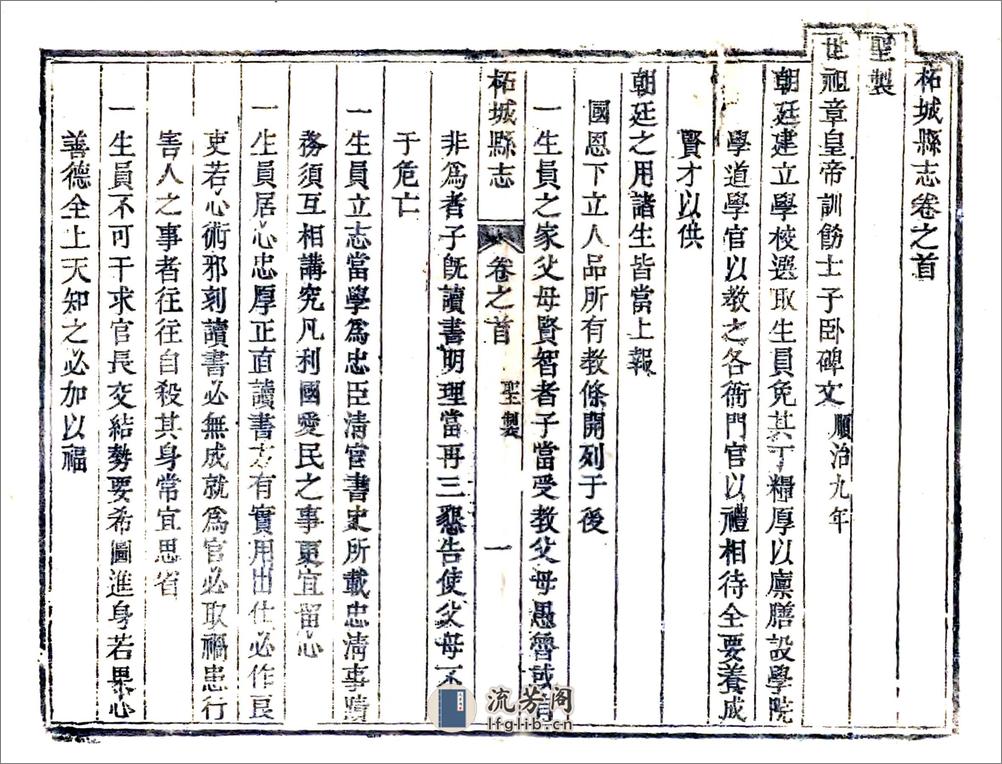 柘城縣志卷之首
聖製
世祖章皇帝訓飭士子卧碑文 順治九年
朝廷建立學校選取生員免其丁糧厚以廪膳設學院
學道學官以教之各衙門官以禮相待全要養成
賢才以供
朝廷之用諸生皆當上報
國恩下立人品所有教條開列于後
一生員之家父母賢智者子當受教父母愚魯或有
柘城縣志 卷之首 聖製 一
非爲者子旣讀書明理當再三懇告使父母不
于危亡
一生員立志當學爲忠臣清官書史所載忠清事蹟
務須互相講究凡利國愛民之事更宜留心
一生員居心忠厚正直讀書方有實用出仕必作良
吏若心術邪刻讀書必無成就爲官必取禍患行
害人之事者往往自殺其身常宜思省
一生員不可干求官長交結勢要希圖進身若果心
善德全上天知之必加以福
流芳阁
lfglib.cn